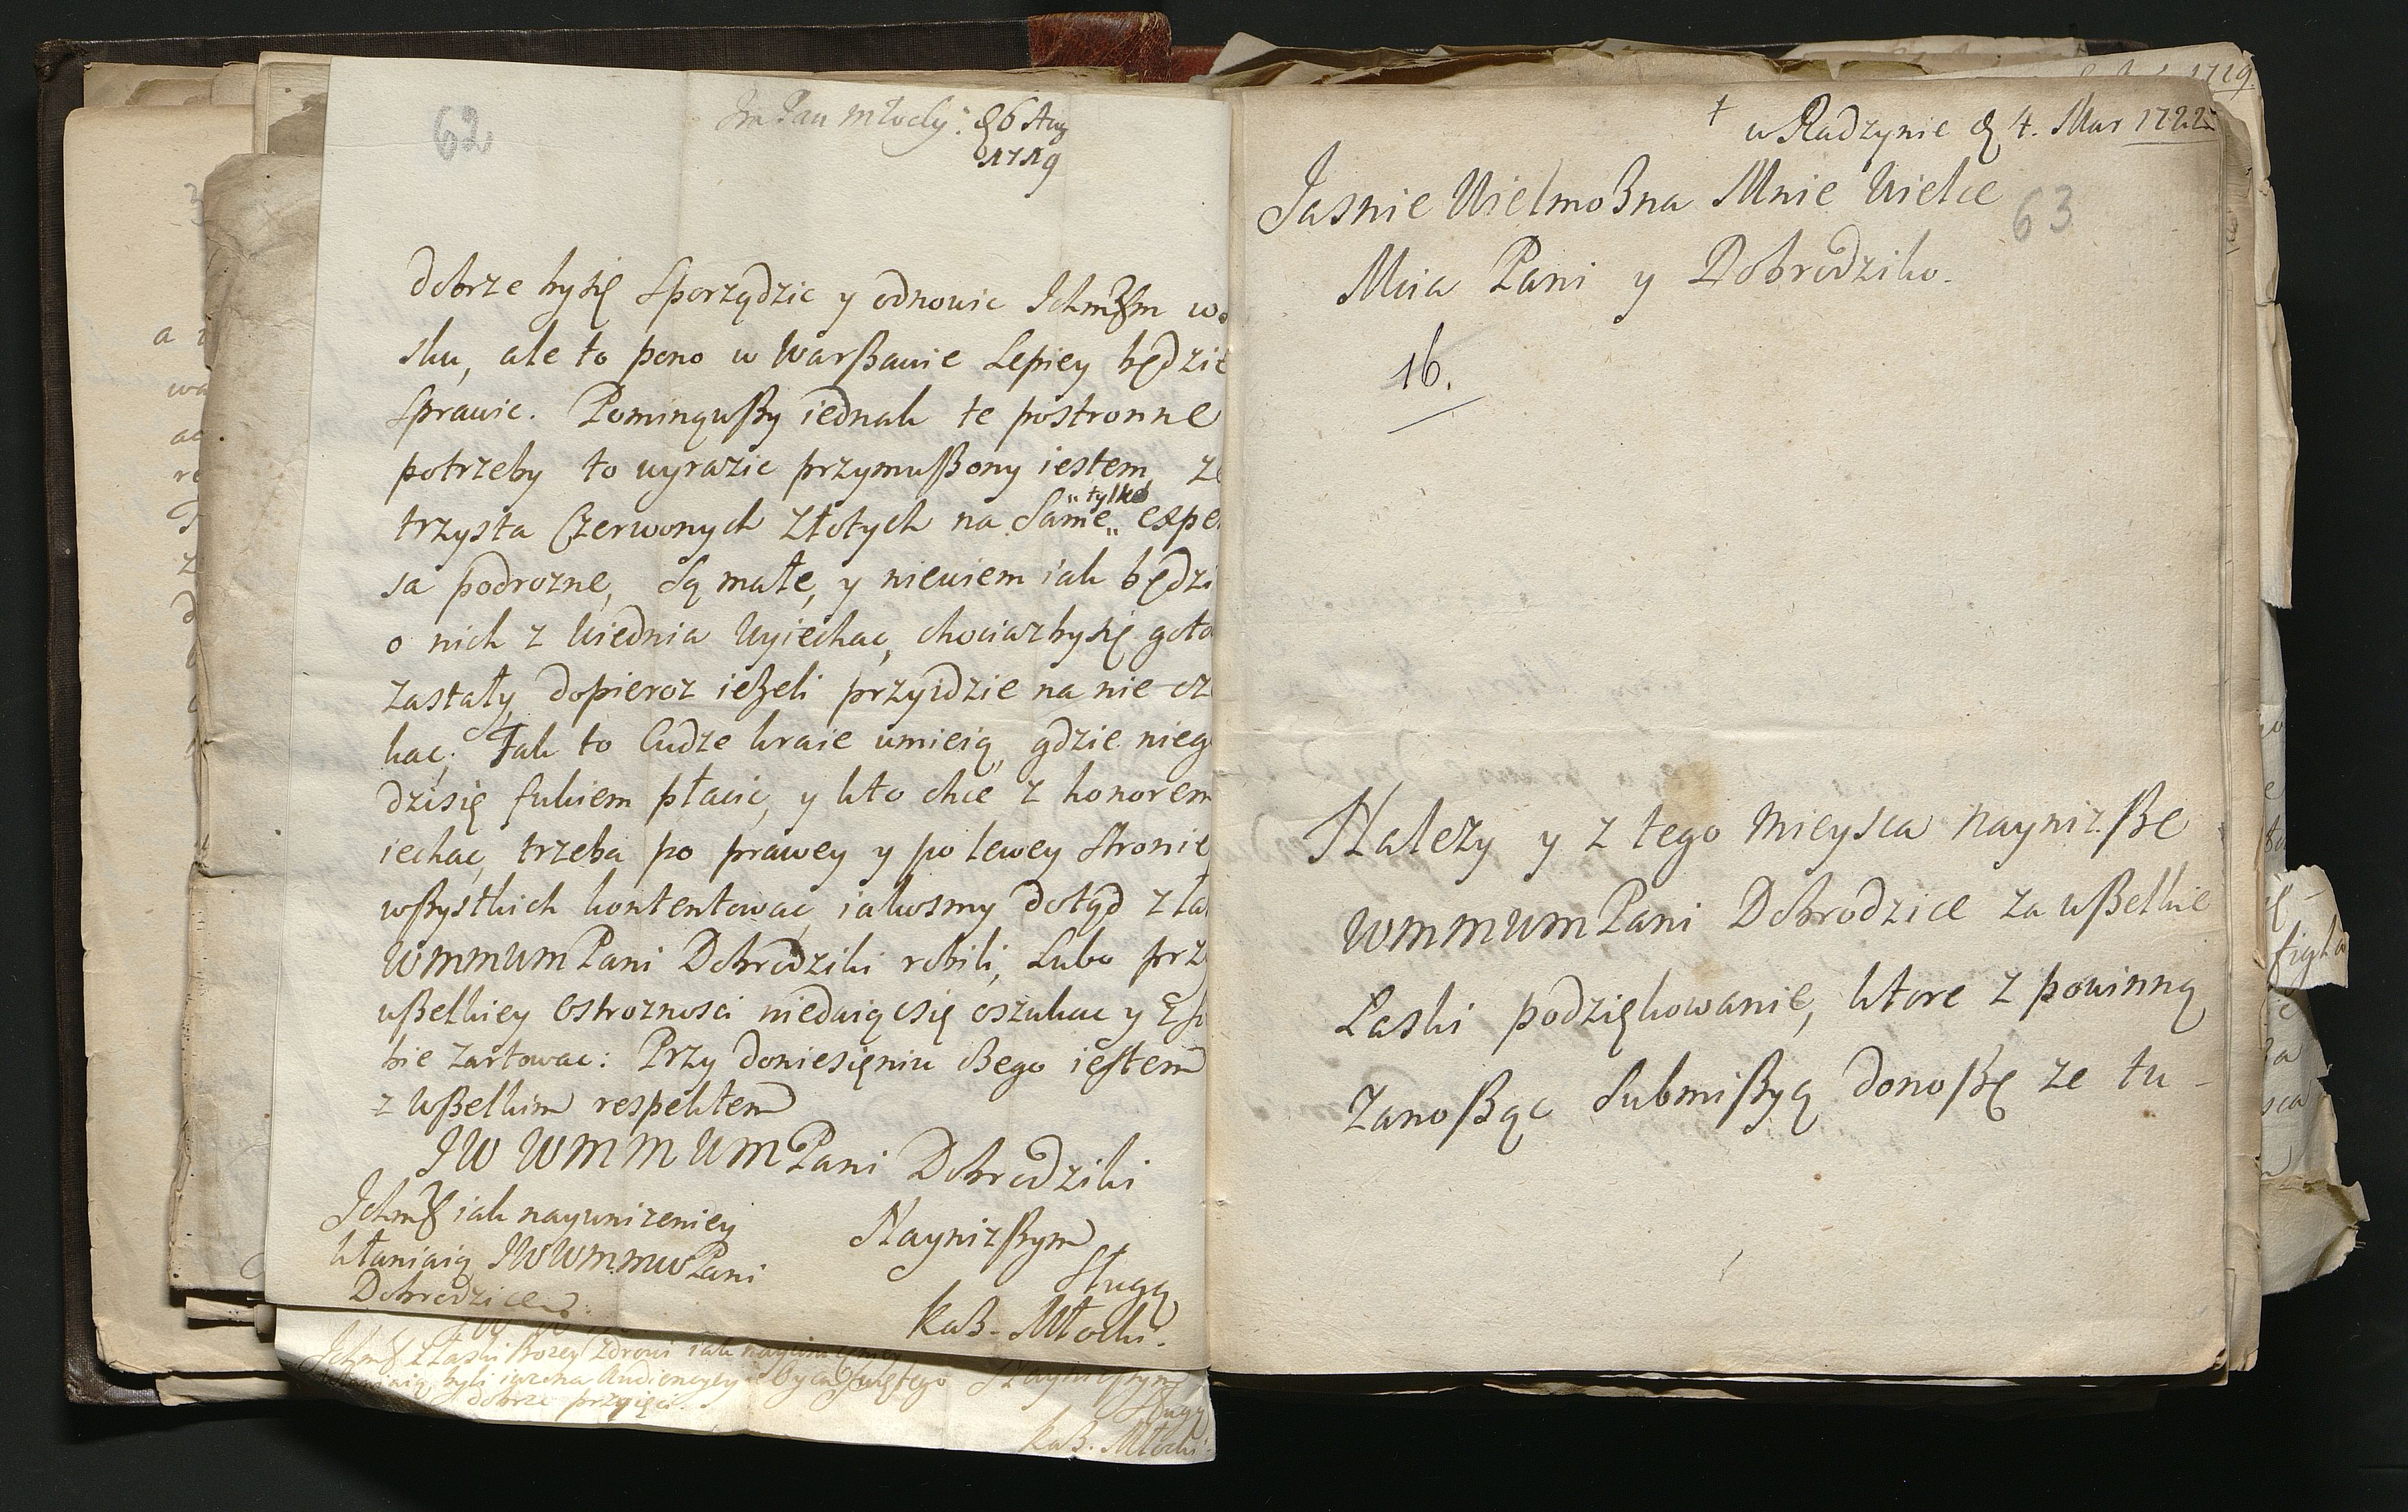 62
Im Pan Młocky. d 6 Aug
1719
dobrze bysię sporządzic y odnowic Ichmm wo
sku, ale to pono w Warßawie Lepiey będzie
sprawic. Pominąwßy iednak te postronne
potrzeby to wyrazic przymußony iestem, ze
trzysta Czerwonych Złotych na Same tylko expe
sa podrozne, są małe, y niewiem iak będzi
o nich z Wiednia Wyiechac, chociazbysię goto
zastały, dopieroz ieżeli przyidzie na nie cz
kac; Tak to Cudze kraie umieią, gdzie nieg
dzisię fukiem płacic, y kto chce z honorem
iechac, trzeba po prawey y po lewey stronie
wßystkich kontentowac, iakosmy dotąd z ła
WMMWMPani Dobrodziki robili, Lubo prz
wßelkiey ostroznosci niedaiącsię oszukac y z
bie zartowac: Przy doniesięniu czego iestem
z Wßelkim respektem
JW WMMWMPani Dobrodziki
Ichm iak nayunizeniey
kłaniaią JWWMMWPani
Dobrodzice
Naynizßym
Sługą
Kaß. Młocki.
Ichm z Łaski Bozey Zdrowi iak
byli iuz na Audiencyey Oyca Swiętego
dobrze przyięci.
Naynizßym
Sługą
Kaß. Młocki
1719
w Radzynie d 4. Mar 1722
Jasnie Wielmożna Mnie Wielce
63
Mcia Pani y Dobrodziko.
16.
Nalezy y z tego Mieysca naynizße
WMMWMPani Dobrodzice za wßelkie
Łaski podziękowanie, ktore z powinną
Zanoßąc Submißyą donoßę ze tu-